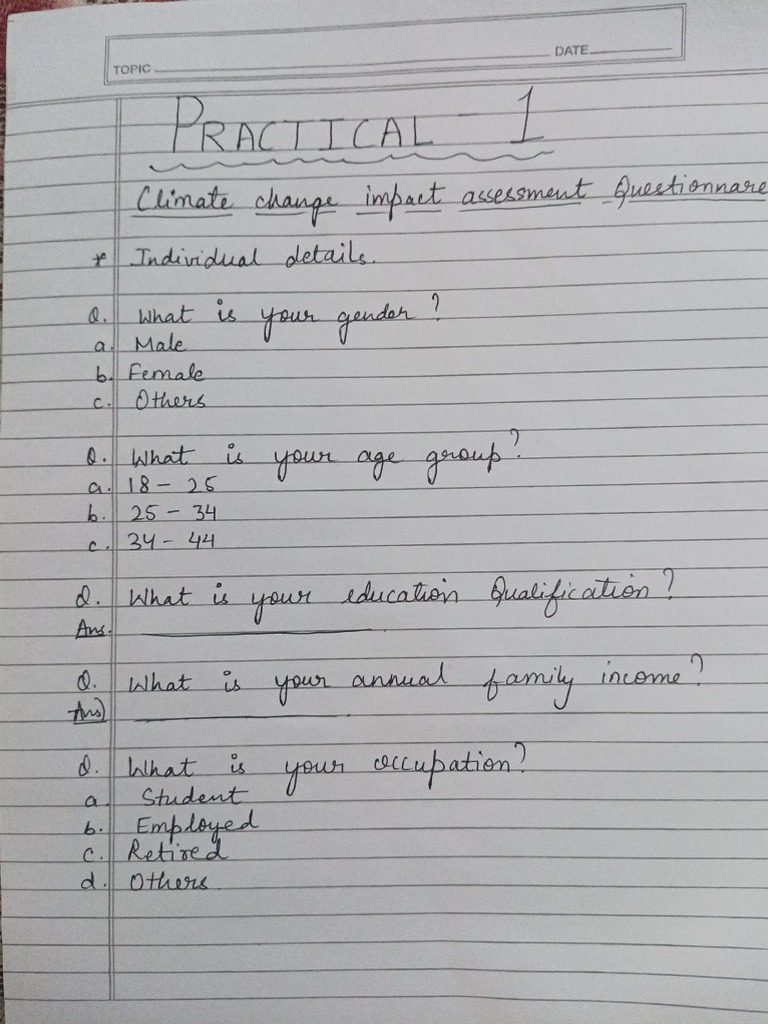 TOPIC DATE
PRACTICAL - 1
Climate change impact assessment Questionnare
* Individual details.
Q. What is your gender?
a. Male
b. Female
c. Others
Q. What is your age group?
a. 18 - 25
b. 25 - 34
c. 34 - 44
Q. What is your education Qualification?
Ans.
Q. What is your annual family income?
Ans)
Q. What is your occupation?
a Student
b. Employed
c. Retired
d. Others.